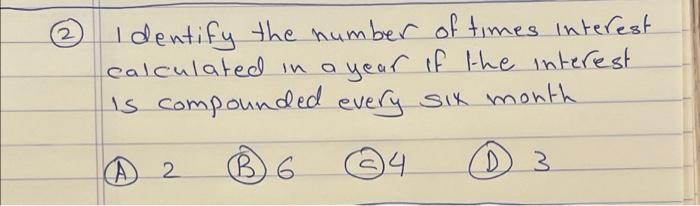 ② Identify the number of times interest
calculated in a year if the interest
is compounded every six month
Ⓐ 2 Ⓑ 6 Ⓒ 4 Ⓓ 3